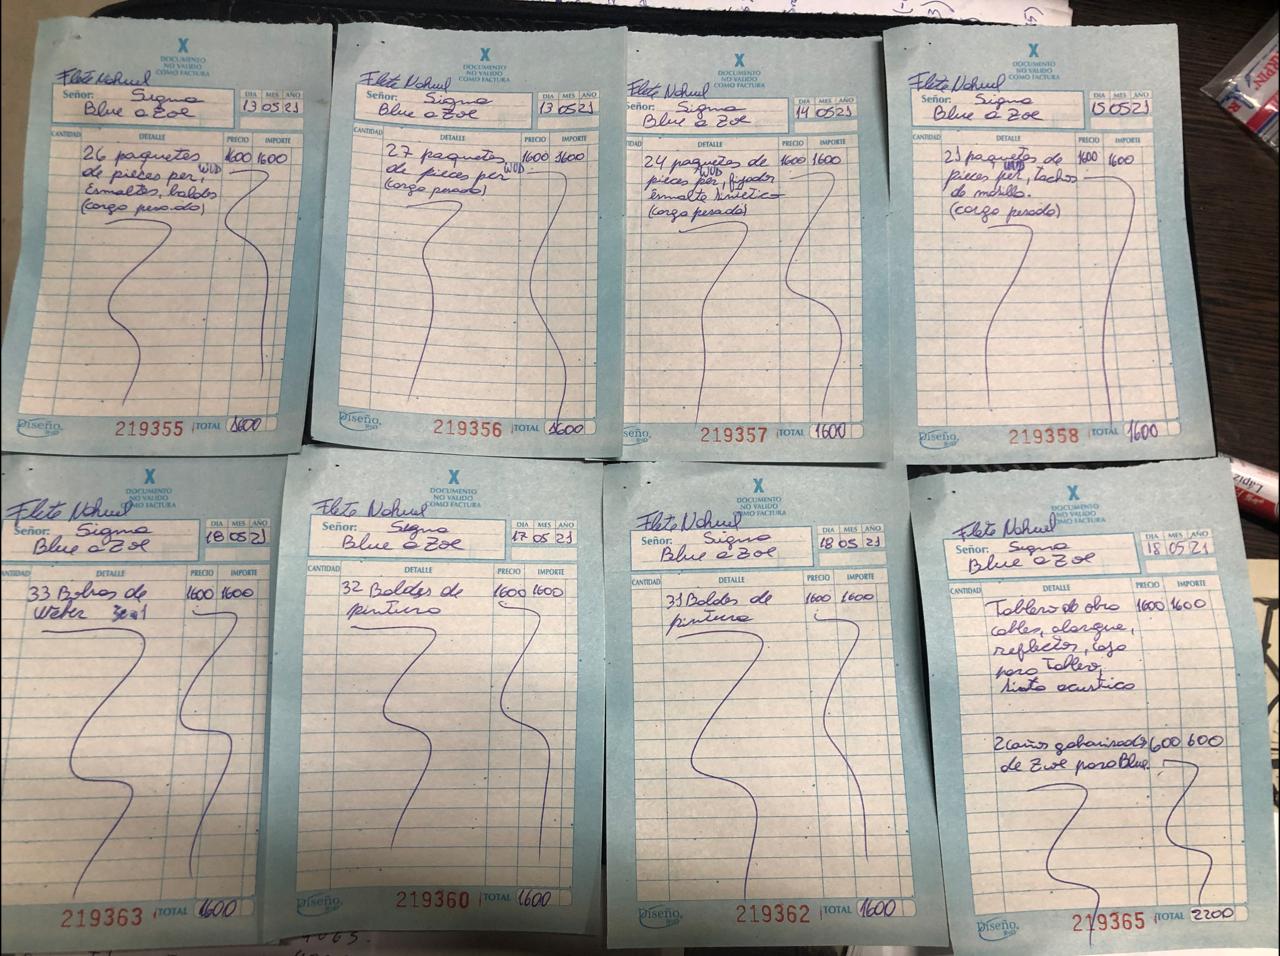 X
DOCUMENTO
NO VALIDO
COMO FACTURA
Flete Nahuel
Señor: Sigma
Blue a Zoe
DIA MES AÑO
13 05 21
CANTIDAD DETALLE PRECIO IMPORTE
26 paquetes 1600 1600
de pieces per, WUD
Esmaltes, baldes
(carga pesada)
Diseño
219355 TOTAL 1600
X
DOCUMENTO
NO VALIDO
COMO FACTURA
Flete Nahuel
Señor: Sigma
Blue a Zoe
DIA MES AÑO
13 05 21
CANTIDAD DETALLE PRECIO IMPORTE
27 paquetes 1600 1600
de pieces per WUD
(carga pesada)
Diseño
219356 TOTAL 1600
X
DOCUMENTO
NO VALIDO
COMO FACTURA
Flete Nahuel
Señor: Sigma
Blue a Zoe
DIA MES AÑO
14 05 21
DETALLE PRECIO IMPORTE
24 paquetes de 1600 1600
pieces per, WUD fijador
esmalte sintetico
(carga pesada)
Diseño
219357 TOTAL 1600
X
DOCUMENTO
NO VALIDO
COMO FACTURA
Flete Nahuel
Señor: Sigma
Blue a Zoe
DIA MES AÑO
15 05 21
CANTIDAD DETALLE PRECIO IMPORTE
21 paquetes de 1600 1600
pieces per, WUD tachos
de masilla.
(carga pesada)
Diseño
219358 TOTAL 1600
X
DOCUMENTO
NO VALIDO
COMO FACTURA
Flete Nahuel
Señor: Sigma
Blue a Zoe
DIA MES AÑO
18 05 21
CANTIDAD DETALLE PRECIO IMPORTE
33 Bolsas de 1600 1600
Weber 3en1
219363 TOTAL 1600
X
DOCUMENTO
NO VALIDO
COMO FACTURA
Flete Nahuel
Señor: Sigma
Blue a Zoe
DIA MES AÑO
17 05 21
CANTIDAD DETALLE PRECIO IMPORTE
32 Baldes de 1600 1600
pintura
Diseño
219360 TOTAL 1600
X
DOCUMENTO
NO VALIDO
COMO FACTURA
Flete Nahuel
Señor: Sigma
Blue a Zoe
DIA MES AÑO
18 05 21
CANTIDAD DETALLE PRECIO IMPORTE
31 Baldes de 1600 1600
pintura
Diseño
219362 TOTAL 1600
X
DOCUMENTO
NO VALIDO
COMO FACTURA
Flete Nahuel
Señor: Sigma
Blue a Zoe
DIA MES AÑO
18 05 21
CANTIDAD DETALLE PRECIO IMPORTE
Tablero de obra 1600 1600
cables, alargue,
reflector, caja
para Tablero,
Sinta acustica
2 caños galvanizados 600 600
de Zoe para Blue.
Diseño
219365 TOTAL 2200
Lapiz